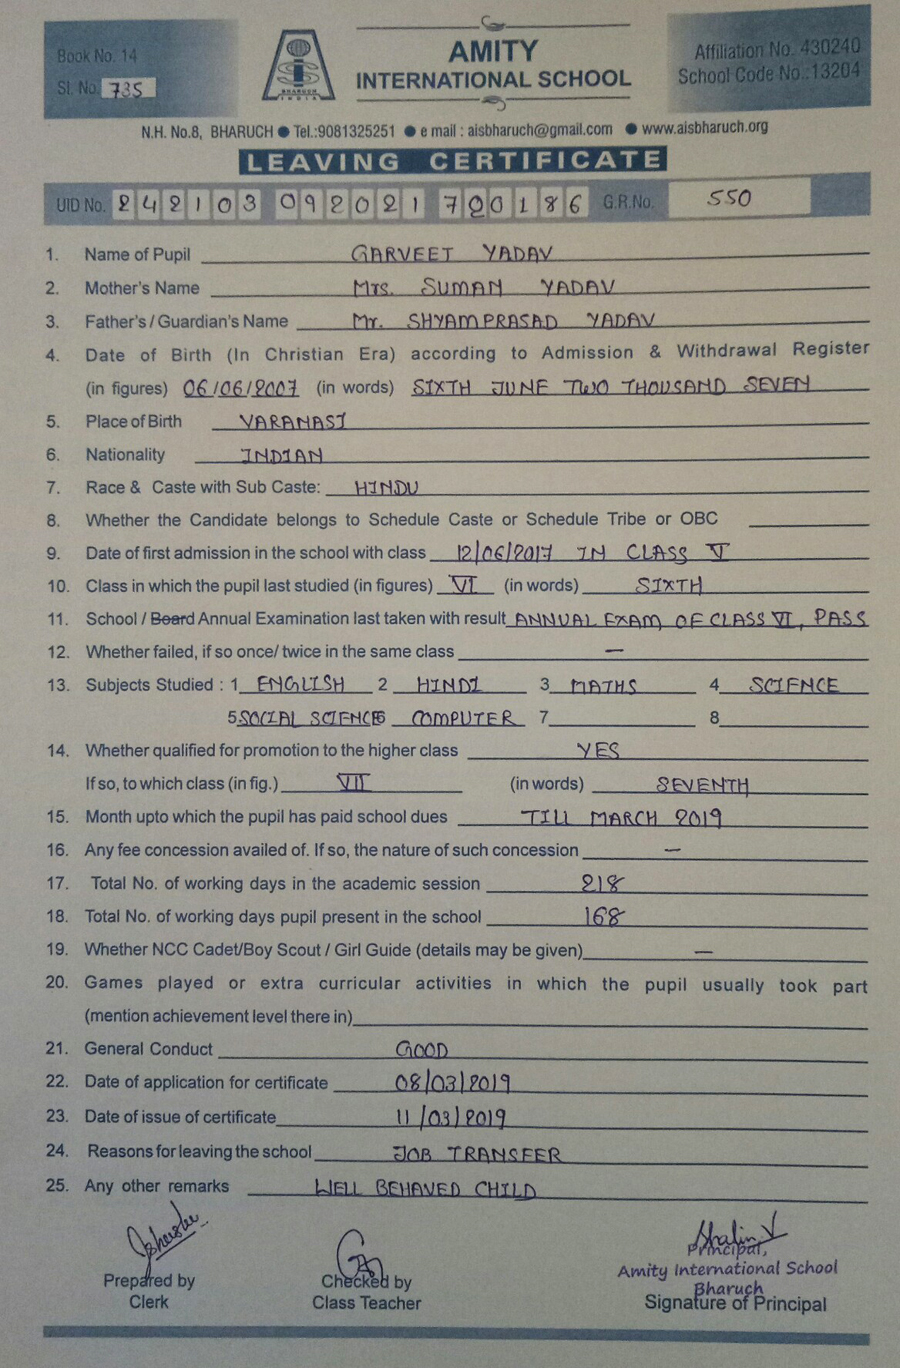 Book No. 14
Sl. No. 735
BHARUCH
INDIA
AMITY
INTERNATIONAL SCHOOL
Affiliation No. 430240
School Code No.:13204
N.H. No.8, BHARUCH ● Tel.:9081325251 ● e mail : aisbharuch@gmail.com ● www.aisbharuch.org
LEAVING CERTIFICATE
UID No. 242103 092021 700186 G.R.No. 550
1. Name of Pupil GARVEET YADAV
2. Mother's Name Mrs. SUMAN YADAV
3. Father's / Guardian's Name Mr. SHYAMPRASAD YADAV
4. Date of Birth (In Christian Era) according to Admission & Withdrawal Register
(in figures) 06/06/2007 (in words) SIXTH JUNE TWO THOUSAND SEVEN
5. Place of Birth VARANASI
6. Nationality INDIAN
7. Race & Caste with Sub Caste: HINDU
8. Whether the Candidate belongs to Schedule Caste or Schedule Tribe or OBC
9. Date of first admission in the school with class 12/06/2017 IN CLASS V
10. Class in which the pupil last studied (in figures) VI (in words) SIXTH
11. School / Board Annual Examination last taken with result ANNUAL EXAM OF CLASS VI, PASS
12. Whether failed, if so once/ twice in the same class —
13. Subjects Studied : 1 ENGLISH 2 HINDI 3 MATHS 4 SCIENCE
5 SOCIAL SCIENCE 6 COMPUTER 7 8
14. Whether qualified for promotion to the higher class YES
If so, to which class (in fig.) VII (in words) SEVENTH
15. Month upto which the pupil has paid school dues TILL MARCH 2019
16. Any fee concession availed of. If so, the nature of such concession —
17. Total No. of working days in the academic session 218
18. Total No. of working days pupil present in the school 168
19. Whether NCC Cadet/Boy Scout / Girl Guide (details may be given) —
20. Games played or extra curricular activities in which the pupil usually took part
(mention achievement level there in)
21. General Conduct GOOD
22. Date of application for certificate 08/03/2019
23. Date of issue of certificate 11/03/2019
24. Reasons for leaving the school JOB TRANSFER
25. Any other remarks WELL BEHAVED CHILD
Principal,
Amity International School
Bharuch
Prepared by
Clerk
Checked by
Class Teacher
Signature of Principal